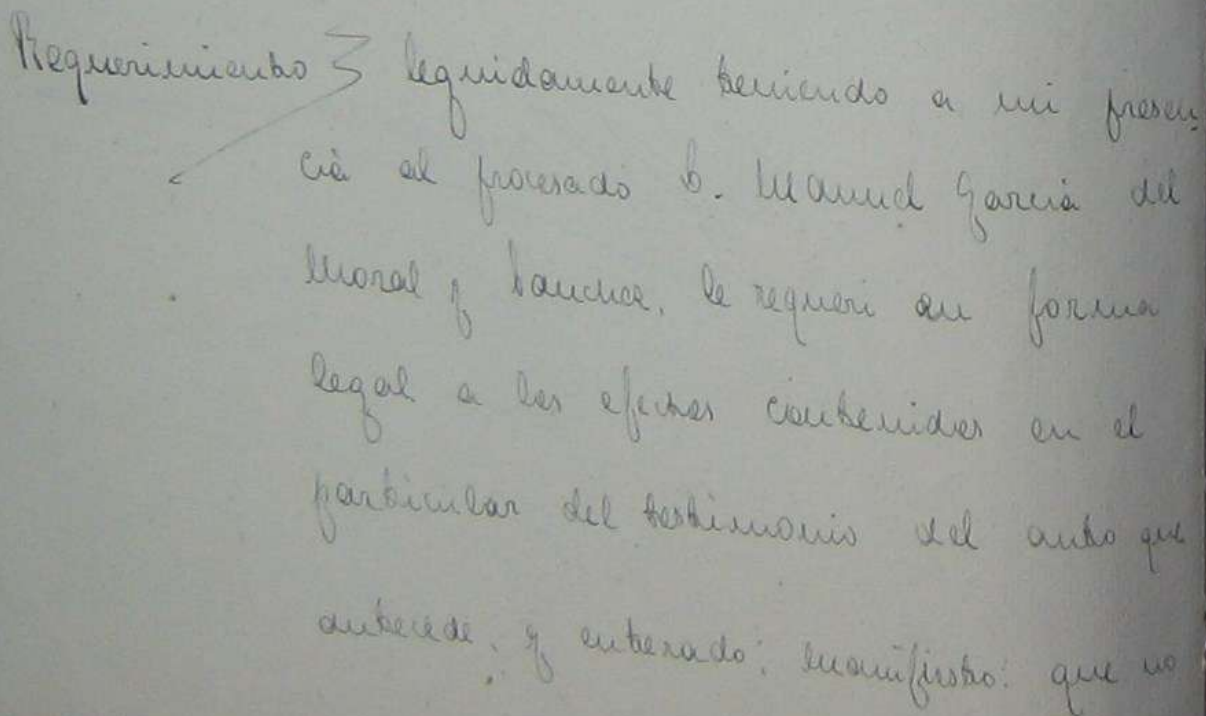 Requerimiento Seguidamente teniendo a mi presen-
cia al procesado D. Manuel García del
Moral y Sanchez, le requeri en forma
legal a los efectos contenidos en el
particular del testimonio del auto que
antecede, y enterado: manifestó: que no